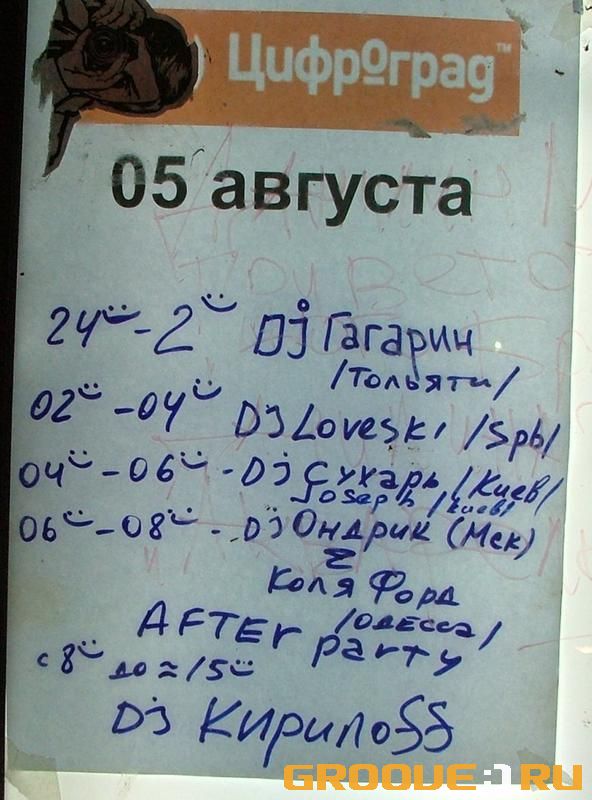 ЦифрОград™
05 августа
24 - 2 Dj Гагарин
/Тольяти/
02 - 04 Dj Loveski /Spb/
04 - 06 - Dj Сухарь /Киев/
Joseph /Киев/
06 - 08 - Dj Ондрик (Мск)
Σ
Коля Форд
/Одесса/
AFTEr party
с 8 до ≈ 15
Dj Кирилоff
GROOVE:).RU